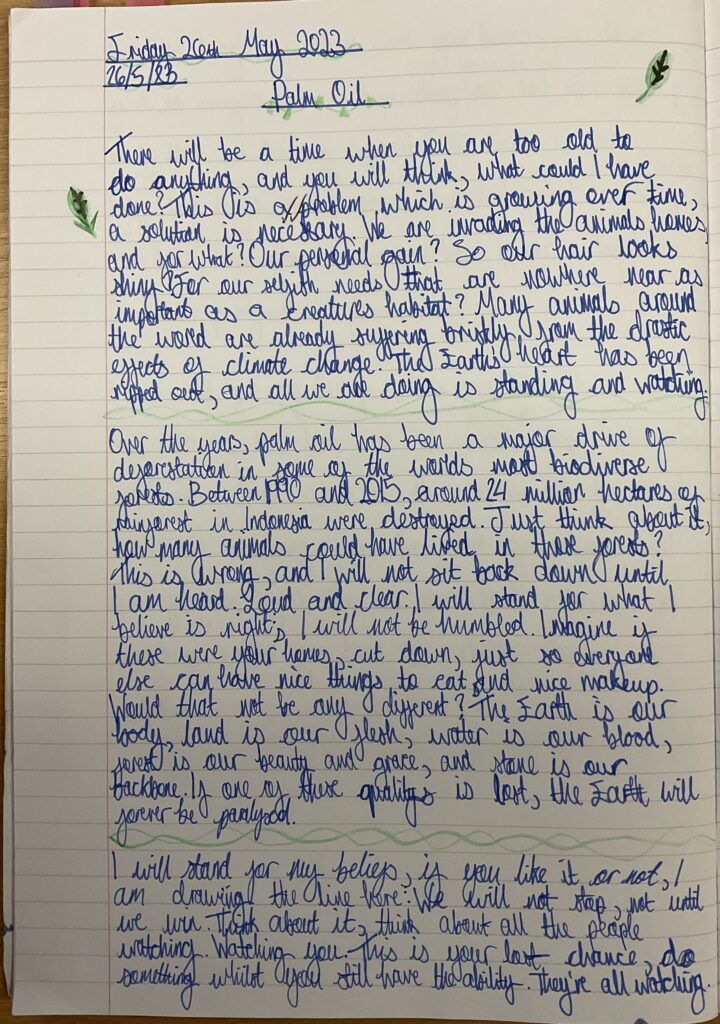 Friday 26th May 2023
26/5/23
Palm Oil
There will be a time when you are too old to
do anything, and you will think, what could I have
done? This is a problem which is growing over time,
a solution is necessary. We are invading the animals homes,
and for what? Our personal gain? So our hair looks
shiny? For our selfish needs that are nowhere near as
important as a creatures habitat? Many animals around
the word are already suffering briskly from the drastic
effects of climate change. The Earth's heart has been
ripped out, and all we are doing is standing and watching.
Over the years, palm oil has been a major drive of
deforestation in some of the worlds most biodiverse
forests. Between 1990 and 2015, around 24 million hectares of
rainforest in Indonesia were destroyed. Just think about it,
how many animals could have lived in those forests?
This is wrong, and I will not sit back down until
I am heard. Loud and clear. I will stand for what I
believe is right, I will not be humbled. Imagine if
these were your homes, cut down, just so everyone
else can have nice things to eat and nice makeup.
Would that not be any different? The Earth is our
body, land is our flesh, water is our blood,
forest is our beauty and grace, and stone is our
backbone. If one of these qualitys is lost, the Earth will
forever be paralysed.
I will stand for my beliefs, if you like it or not, I
am drawing the line here. We will not stop, not until
we win. Think about it, think about all the people
watching. Watching you. This is your last chance, do
something whilst you still have the ability. They're all watching.